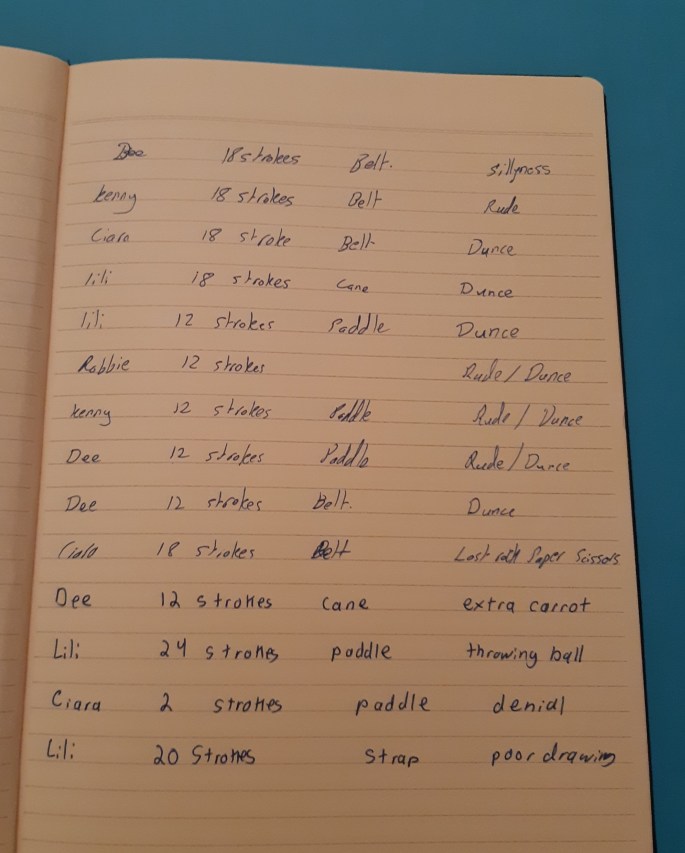 Dee 18 strokes Belt. Sillyness
Kenny 18 strokes Belt Rude
Ciara 18 stroke Belt Dunce
lili 18 strokes Cane Dunce
lili 12 strokes Paddle Dunce
Robbie 12 strokes Rude / Dunce
Kenny 12 strokes Paddle Rude / Dunce
Dee 12 strokes Paddle Rude / Dunce
Dee 12 strokes Belt. Dunce
Ciara 18 strokes Belt Lost rock Paper Scissors
Dee 12 strokes cane extra carrot
Lili 24 strokes paddle throwing ball
Ciara 2 strokes paddle denial
Lili 20 Strokes Strap poor drawing